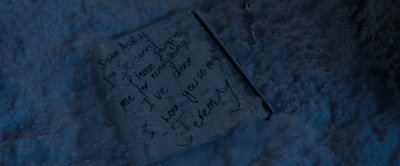 Dear Ashley
I'm so sorry
Please forgive
me for everything
I've done
I love you so much
Jeremy